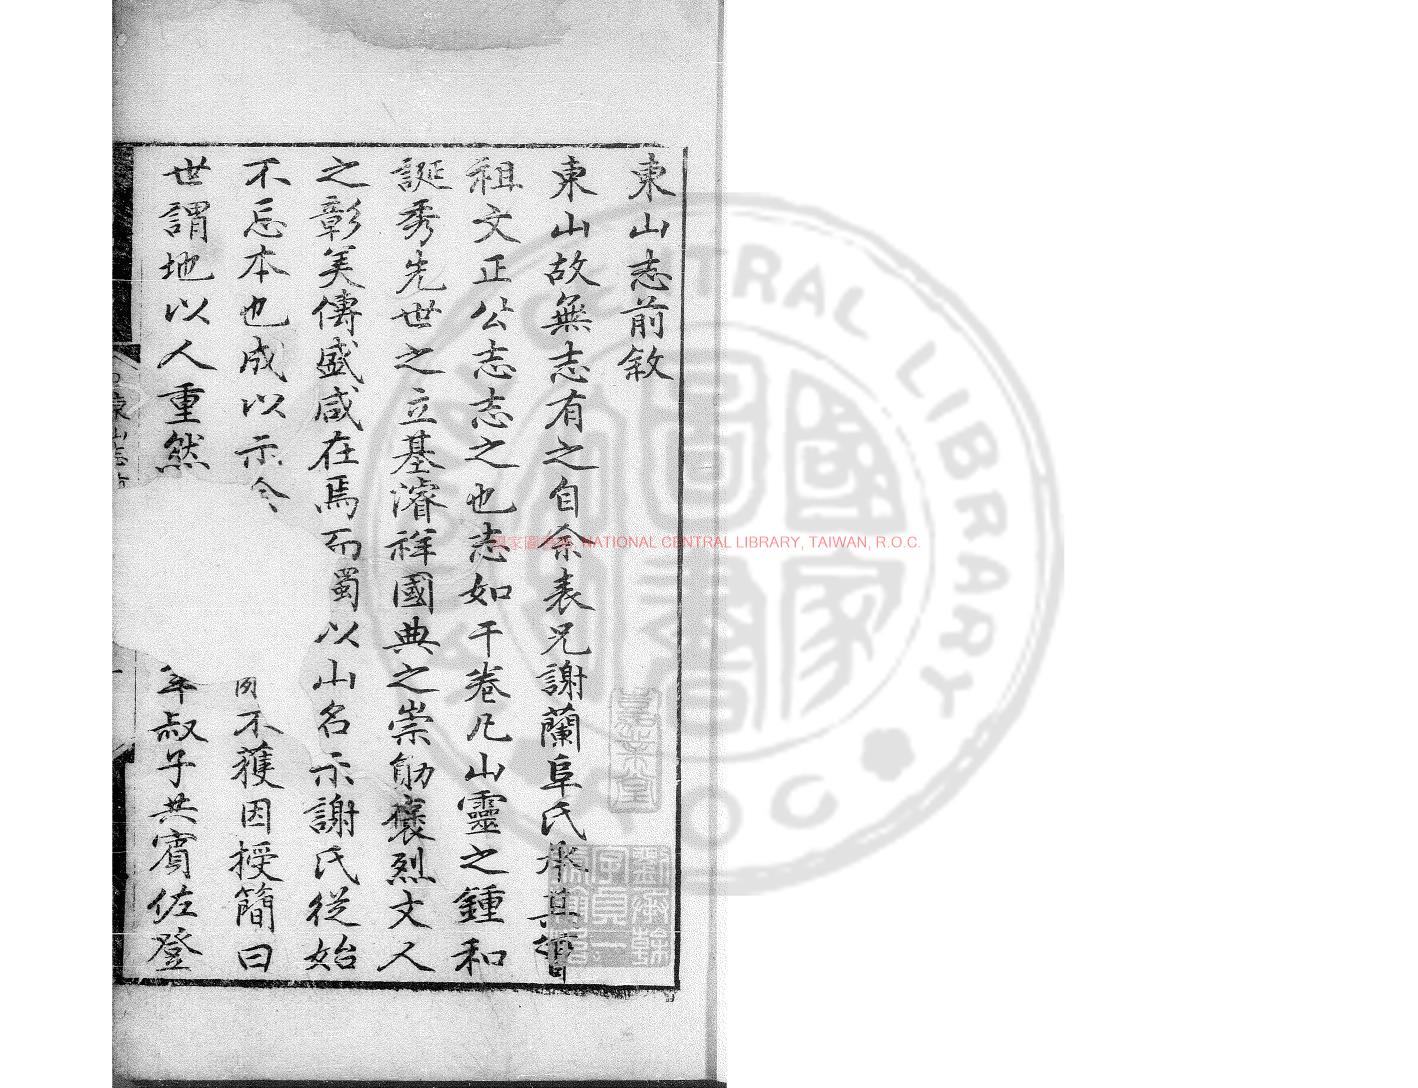 東山志前敘
東山故無志有之自余表兄謝蘭阜氏承其
祖文正公志志之也志如干卷凡山靈之鍾和
誕秀先世之立基濬祥國典之崇勛襃烈文人
之彰美傳盛咸在焉而蜀以山名示謝氏從始
不忘本也成以示今
不獲因授簡曰
世謂地以人重然
年叔子共賓佐登
東山志
嘉業堂
國家圖書館 NATIONAL CENTRAL LIBRARY, TAIWAN, R.O.C.
CENTRAL LIBRARY